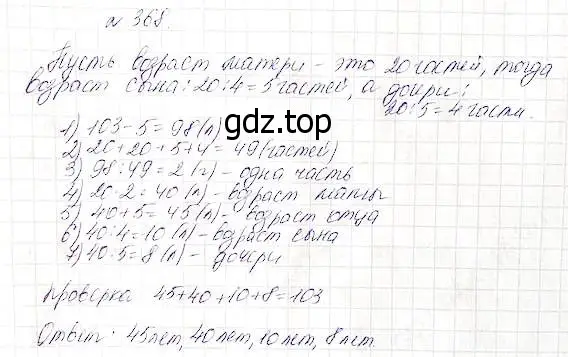 № 368.
Пусть возраст матери – это 20 частей, тогда
возраст сына: 20:4=5 частей, а дочери:
20:5=4 части.
1) 103-5=98(л)
gdz.top
2) 20+20+5+4=49(частей)
3) 98:49=2(г) - одна часть
4) 20·2=40(л) - возраст мамы
5) 40+5=45(л) - возраст отца
6) 40:4=10(л) - возраст сына
7) 40:5=8(л) - дочери
Проверка 45+40+10+8=103
Ответ: 45лет, 40лет, 10лет, 8лет.